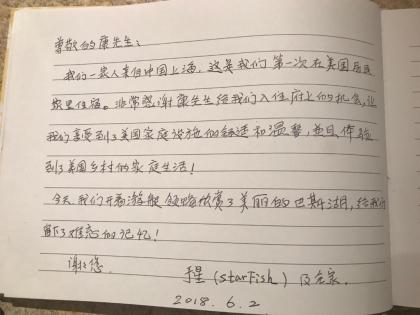 尊敬的康先生：
我们一家人来自中国上海，这是我们第一次在美国居民
家里住宿。非常感谢康先生给我们入住府上的机会，让
我们享受到了美国家庭设施的舒适和温馨，并且体验
到了美国乡村的家庭生活！
今天我们开着游艇领略欣赏了美丽的巴斯湖，给我们
留下了难忘的记忆！
谢谢您
星（starFish）及全家.
2018. 6. 2